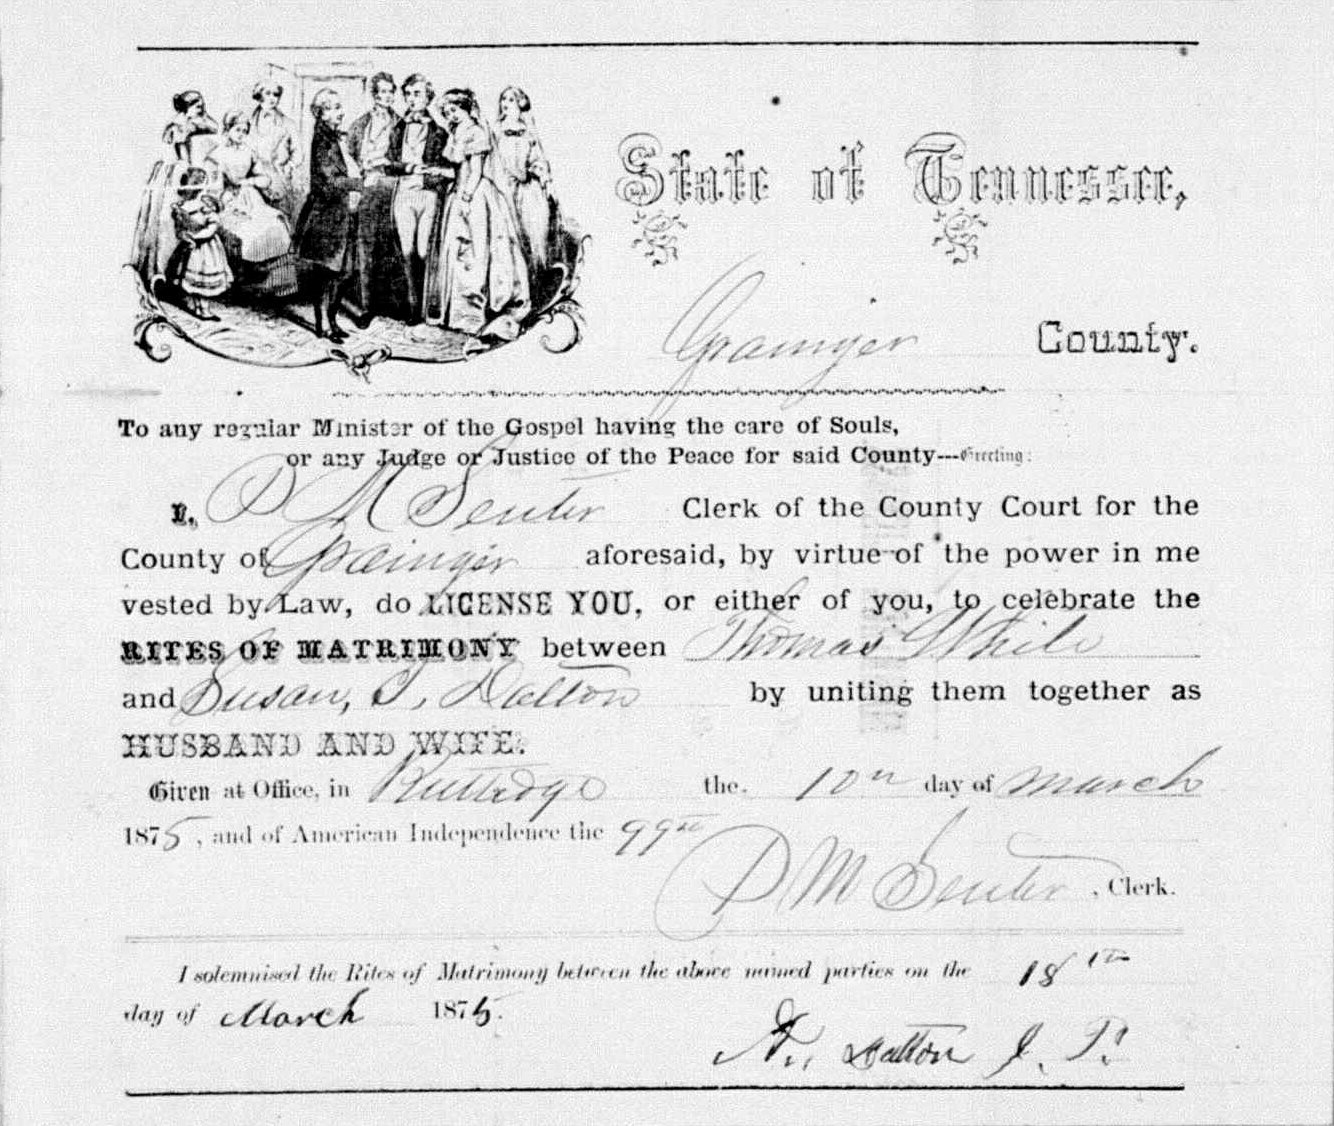 State of Tennessee,
Grainger County.
To any regular Minister of the Gospel having the care of Souls,
or any Judge or Justice of the Peace for said County---Greeting:
I, P M Senter Clerk of the County Court for the
County of Grainger aforesaid, by virtue of the power in me
vested by Law, do LICENSE YOU, or either of you, to celebrate the
RITES OF MATRIMONY between Thomas White
and Susan, T. Dalton by uniting them together as
HUSBAND AND WIFE.
Given at Office, in Rutledge the. 10th day of March
1875, and of American Independence the 99th
P M Senter, Clerk.
I solemnised the Rites of Matrimony between the above named parties on the 18th
day of March 1875.
Dalton J. P.